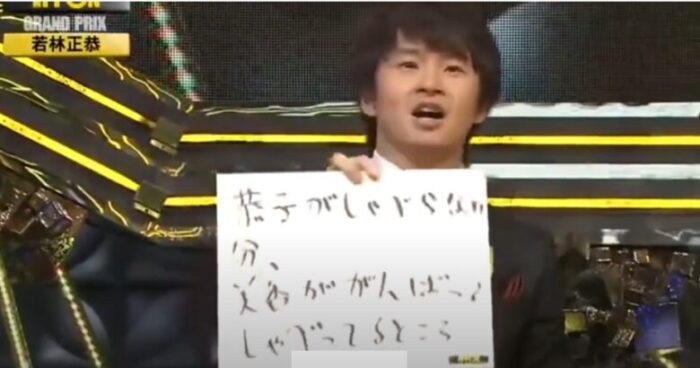 GRAND PRIX
若林正恭
恭子がしゃべらない
分、
美香ががんばって
しゃべってるところ